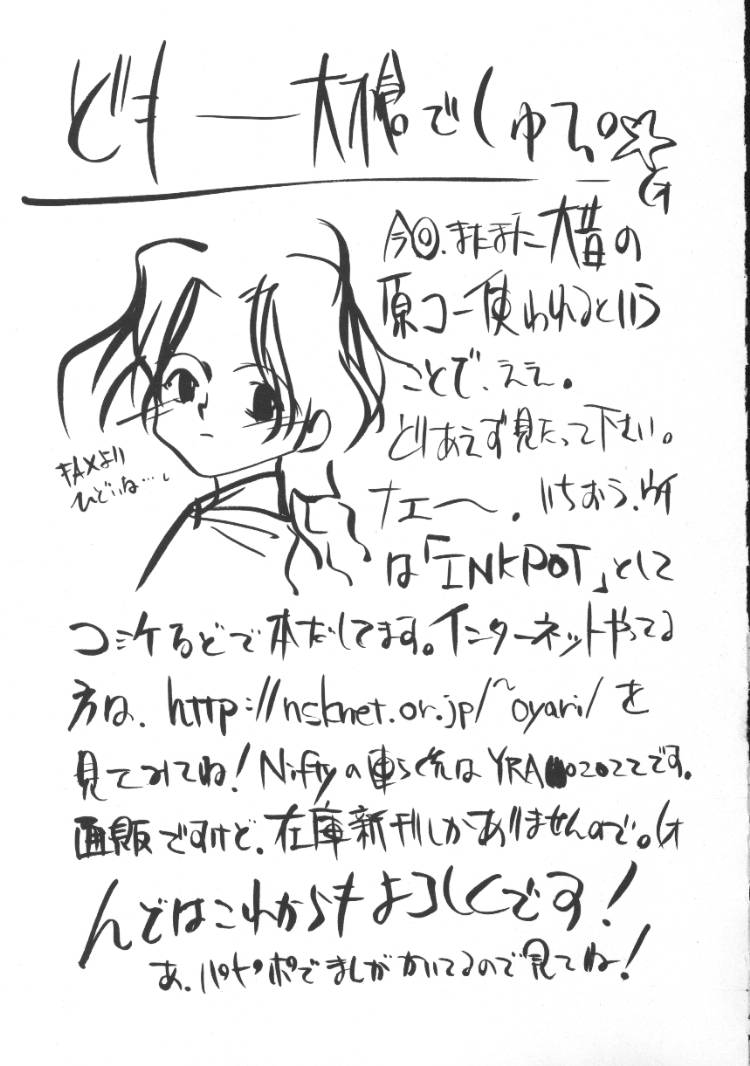 どもー大槍でしゅて。☆
今回、またまた大昔の
原コー使われるという
ことで、ええ。
とりあえず見たって下さい。
ナエ〜。いちおう、ウチ
は「INKPOT」として
コミケなどで本だしてます。インターネットやってる
方は、http://nsknet.or.jp/~oyari/を
見てみてね!Niftyの連らく先はYRA02022です。
通販ですけど、在庫新刊しかありませんので。(オ
んではこれからもよろしくです!
あ、パトポポでまんがかいてるので見てね!
FAXより
ひどいな…。